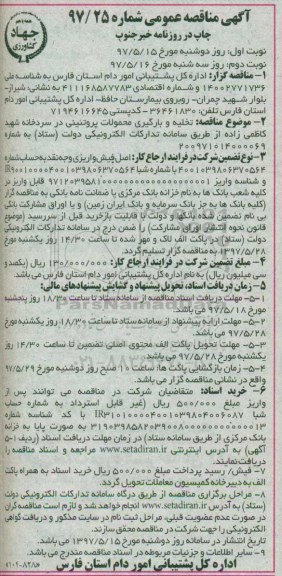 آگهی مناقصه عمومی شماره ۹۷/۲۵
چاپ در روزنامه خبر جنوب
جهاد
کشاورزی
نوبت اول: روز دوشنبه مورخ ۹۷/۵/۱۵
نوبت دوم: روز سه شنبه مورخ ۹۷/۵/۱۶
۱- مناقصه گزار: اداره کل پشتیبانی امور دام استان فارس به شناسه ملی
۱۴۰۰۲۷۷۱۷۳۶ و شماره اقتصادی ۴۱۱۱۶۸۵۸۷۷۸۳ به نشانی: شیراز-
بلوار شهید چمران- روبروی بیمارستان حافظ- اداره کل پشتیبانی امور دام
استان فارس تلفن: ۳۶۴۶۱۸۳۰ - کدپستی ۷۱۹۴۶۱۶۶۴۵
۲- موضوع مناقصه: تخلیه و بارگیری محمولات پروتئینی در سردخانه شهید
کاظمی زاده از طریق سامانه تدارکات الکترونیکی دولت (ستاد) به شماره
۲۰۰۹۷۱۰۱۴۰۰۰۰۶۹
۳- نوع تضمین شرکت در فرایند ارجاع کار: اصل فیش واریزی وجه نقد به حساب شماره
و شناسه واریز
کلیه شعب بانک ها به نام خزانه بانک مرکزی یا ضمانت نامه بانکی به مناقصه گزار
(کلیه بانک ها به جز بانک سرمایه و بانک ایران زمین) و یا اوراق مشارکت بانکی
بی نام تضمین شده بانکها و دولت با قابلیت بازخرید قبل از سررسید (موضوع
قانون نحوه انتشار اوراق مشارکت) را ضمن درج در سامانه تدارکات الکترونیکی
دولت (ستاد) در پاکت الف لاک و مهر شده تا ساعت ۱۴/۳۰ روز یکشنبه مورخ
۱۳۹۷/۵/۲۸ به مناقصه گزار تسلیم گردد.
۴- مبلغ تضمین شرکت در فرایند ارجاع کار: ۱۳۰/۰۰۰/۰۰۰ ریال (یکصد و
سی میلیون ریال) به نام اداره کل پشتیبانی امور دام استان فارس می باشد
۵- زمان دریافت اسناد، تحویل پیشنهاد و گشایش پیشنهادهای مالی:
۵-۱- مهلت دریافت اسناد مناقصه از سامانه ستاد تا ساعت ۱۸/۳۰ روز پنجشنبه
مورخ ۹۷/۵/۱۸ می باشد.
۵-۲- مهلت ارایه پیشنهاد از سامانه ستاد تا ساعت ۱۸/۳۰ روز یکشنبه مورخ
۹۷/۵/۲۸ می باشد.
۵-۳- مهلت تحویل پاکت الف محتوی اصل تضمین تا ساعت ۱۴/۳۰ روز
یکشنبه مورخ ۹۷/۵/۲۸ می باشد
۵-۴- زمان بازگشایی پاکت ها: ساعت ۱۰ صبح روز دوشنبه مورخ ۹۷/۵/۲۹
واقع در نشانی مناقصه گزار می باشد.
۶- خرید اسناد: متقاضیان شرکت در مناقصه می توانند پس از
واریز مبلغ ۵۰۰/۰۰۰ ریال (غیر قابل استرداد به شماره حساب
شبا با کد شناسه شماره
به صورت پایا به خزانه
بانک مرکزی از طریق سامانه ستاد) در زمان مهلت دریافت اسناد (ردیف ۵-۱
آگهی) به آدرس اینترنتی www.setadiran.ir مراجعه و اسناد مناقصه را
دریافت نمایند.
۷- فیش/ رسید پرداخت مبلغ ۵۰۰/۰۰۰ ریال خرید اسناد به همراه پاکت
الف به دبیرخانه کمیسیون معاملات تحویل گردد.
۸- مراحل برگزاری مناقصه از طریق درگاه سامانه تدارکات الکترونیکی دولت
(ستاد) به آدرس www.setadiran.ir انجام خواهد شد و لازم است مناقصه گران
در صورت عدم عضویت قبلی، مراحل ثبت نام در سایت مذکور و دریافت گواهی
الکترونیکی را جهت شرکت در مناقصه محقق سازند.
تاریخ انتشار در سامانه روز دوشنبه مورخ ۱۳۹۷/۵/۱۵ می باشد.
۹- سایر اطلاعات و جزئیات مربوطه در اسناد مناقصه مندرج می باشد.
اداره کل پشتیبانی امور دام استان فارس